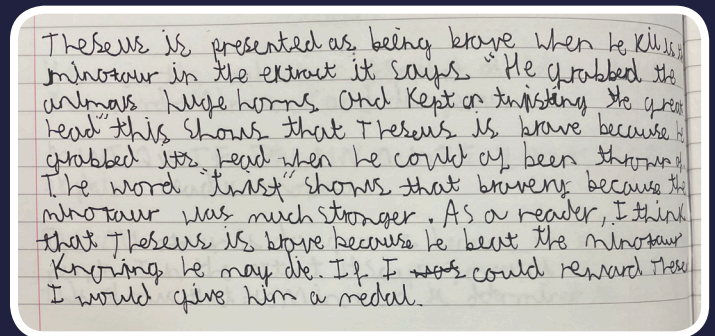 Theseus is presented as being brave when he kills
minotaur in the extract it says "He grabbed the
animals huge horns and kept on twisting the great
head" this shows that Theseus is brave because
grabbed its head when he could of been thrown
The word "twist" shows that bravery because the
minotaur was much stronger. As a reader, I think
that Theseus is brave because he beat the minotaur
knowing he may die. If I could reward
I would give him a medal.